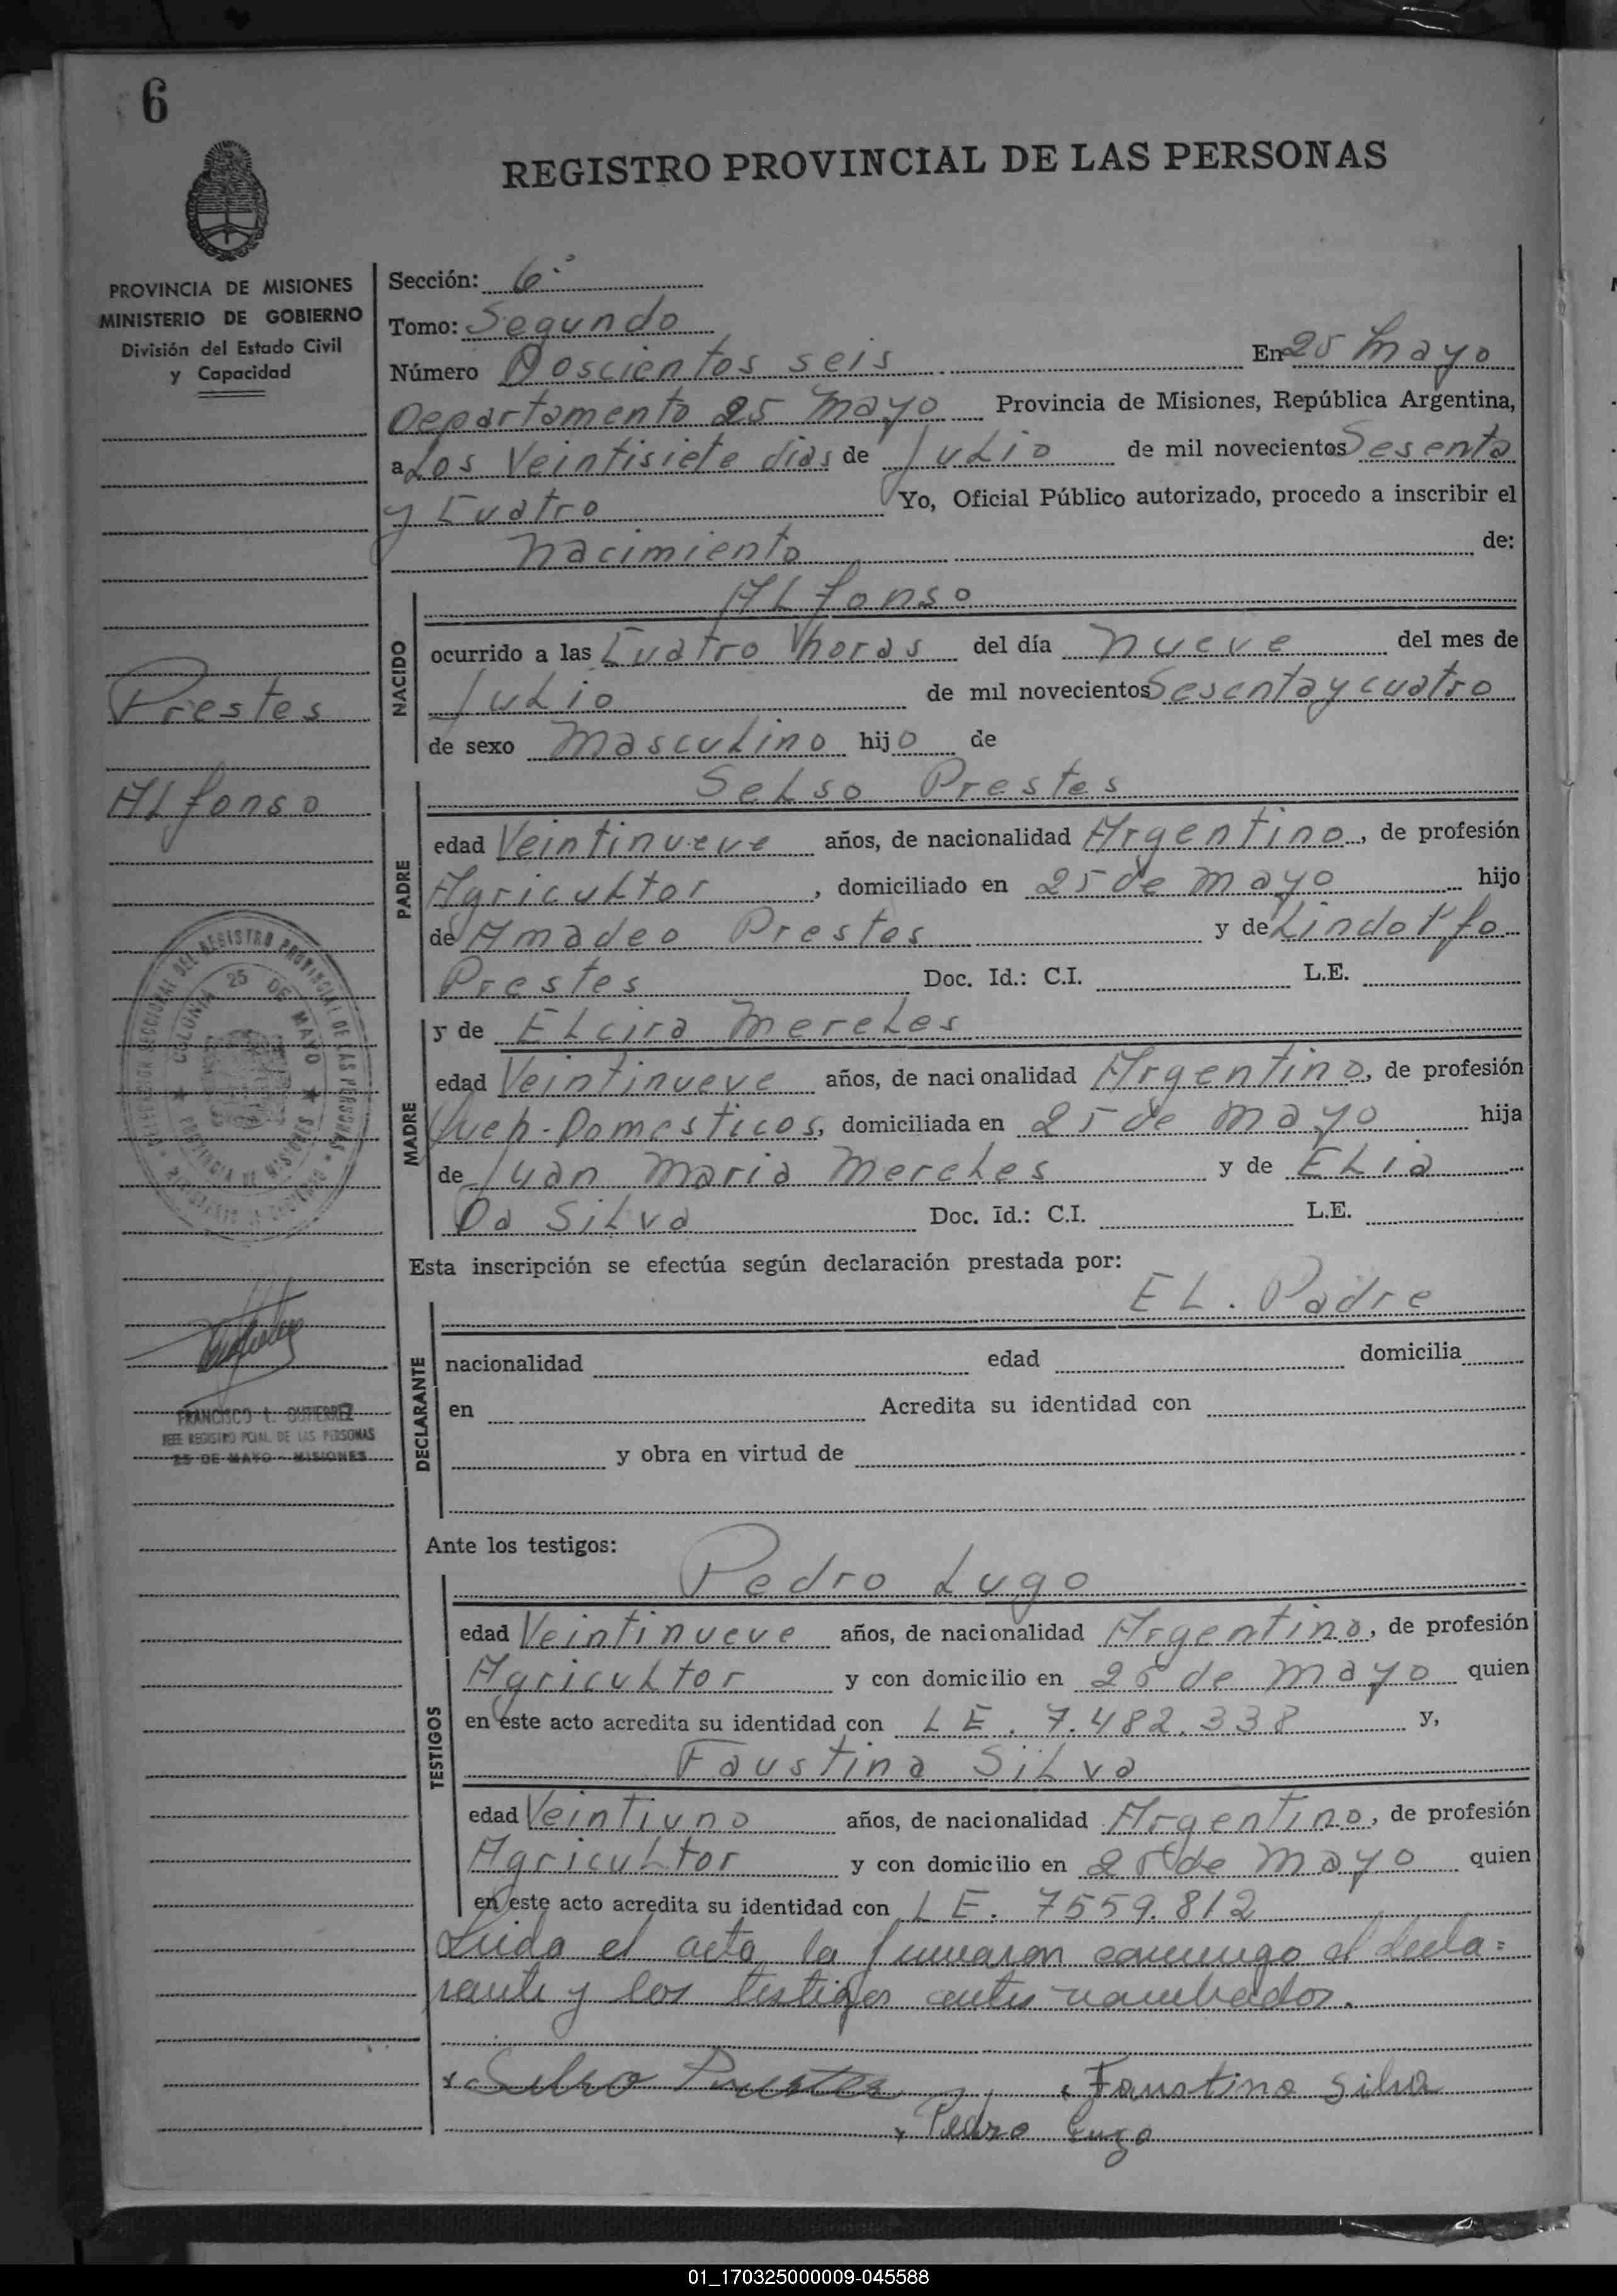 6
REGISTRO PROVINCIAL DE LAS PERSONAS
PROVINCIA DE MISIONES
MINISTERIO DE GOBIERNO
División del Estado Civil
y Capacidad
Sección: 6°
Tomo: Segundo
Número Doscientos seis En 25 Mayo
Departamento 25 Mayo Provincia de Misiones, República Argentina,
a Los Veintisiete dias de Julio de mil novecientos Sesenta
y Cuatro Yo, Oficial Público autorizado, procedo a inscribir el
Nacimiento de:
ALfonso
NACIDO
ocurrido a las Cuatro horas del día nueve del mes de
Julio de mil novecientos Sesenta y cuatro
de sexo Masculino hijo de
Prestes
ALfonso
PADRE
SeLso Prestes
edad Veintinueve años, de nacionalidad Argentino, de profesión
AgricuLtor, domiciliado en 25 de Mayo hijo
de Amadeo Prestes y de
Prestes Doc. Id.: C.I. L.E.
MADRE
y de ELcira MereLes
edad Veintinueve años, de nacionalidad Argentino, de profesión
Queh-Domesticos, domiciliada en 25 de Mayo hija
de Juan Maria MereLes y de ELia
Da SiLva Doc. Id.: C.I. L.E.
DELEGACION SECCIONAL DEL REGISTRO PROVINCIAL DE LAS PERSONAS
COLONIA 25 DE MAYO
PROVINCIA DE MISIONES
Esta inscripción se efectúa según declaración prestada por:
EL. Padre
DECLARANTE
nacionalidad edad domicilia
en Acredita su identidad con
y obra en virtud de
FRANCISCO L. GUTIERREZ
JEFE REGISTRO PCIAL. DE LAS PERSONAS
25 DE MAYO - MISIONES
Ante los testigos:
TESTIGOS
Pedro Lugo
edad Veintinueve años, de nacionalidad Argentino, de profesión
AgricuLtor y con domicilio en 25 de Mayo quien
en este acto acredita su identidad con L E. 7.482.338 y,
Faustina SiLva
edad Veintiuno años, de nacionalidad Argentino, de profesión
AgricuLtor y con domicilio en 25 de Mayo quien
en este acto acredita su identidad con L E. 7559.812
Leida el acta la firmaron conmigo el decla=
rante y los testigos antes nombrados.
x Selso Prestes x Faustino Silva
x Pedro Lugo
01_170325000009-045588